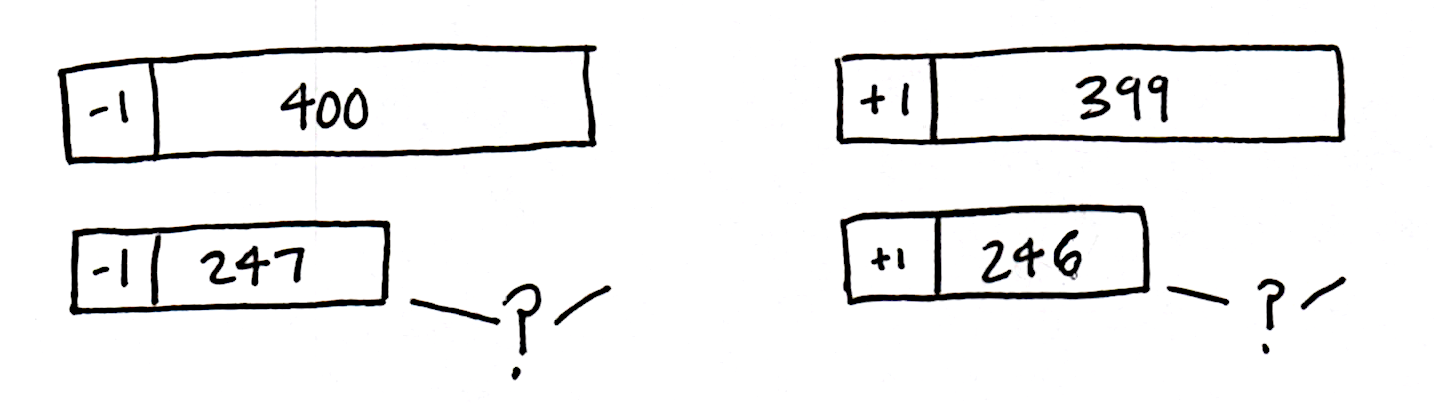 -1 400
-1 247
?
+1 399
+1 246
?